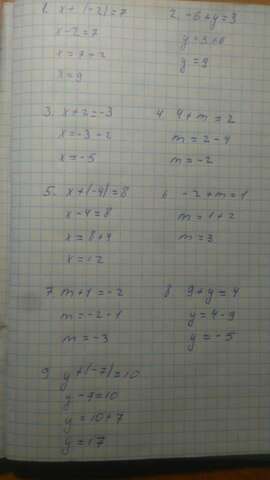 1. x + (-2) = 7
x - 2 = 7
x = 7 + 2
x = 9
2. -6 + y = 3
y = 3 + 6
y = 9
3. x + 2 = -3
x = -3 - 2
x = -5
4. 4 + m = 2
m = 2 - 4
m = -2
5. x + (-4) = 8
x - 4 = 8
x = 8 + 4
x = 12
6. -2 + m = 1
m = 1 + 2
m = 3
7. m + 1 = -2
m = -2 - 1
m = -3
8. 9 + y = 4
y = 4 - 9
y = -5
9. y + (-7) = 10
y - 7 = 10
y = 10 + 7
y = 17